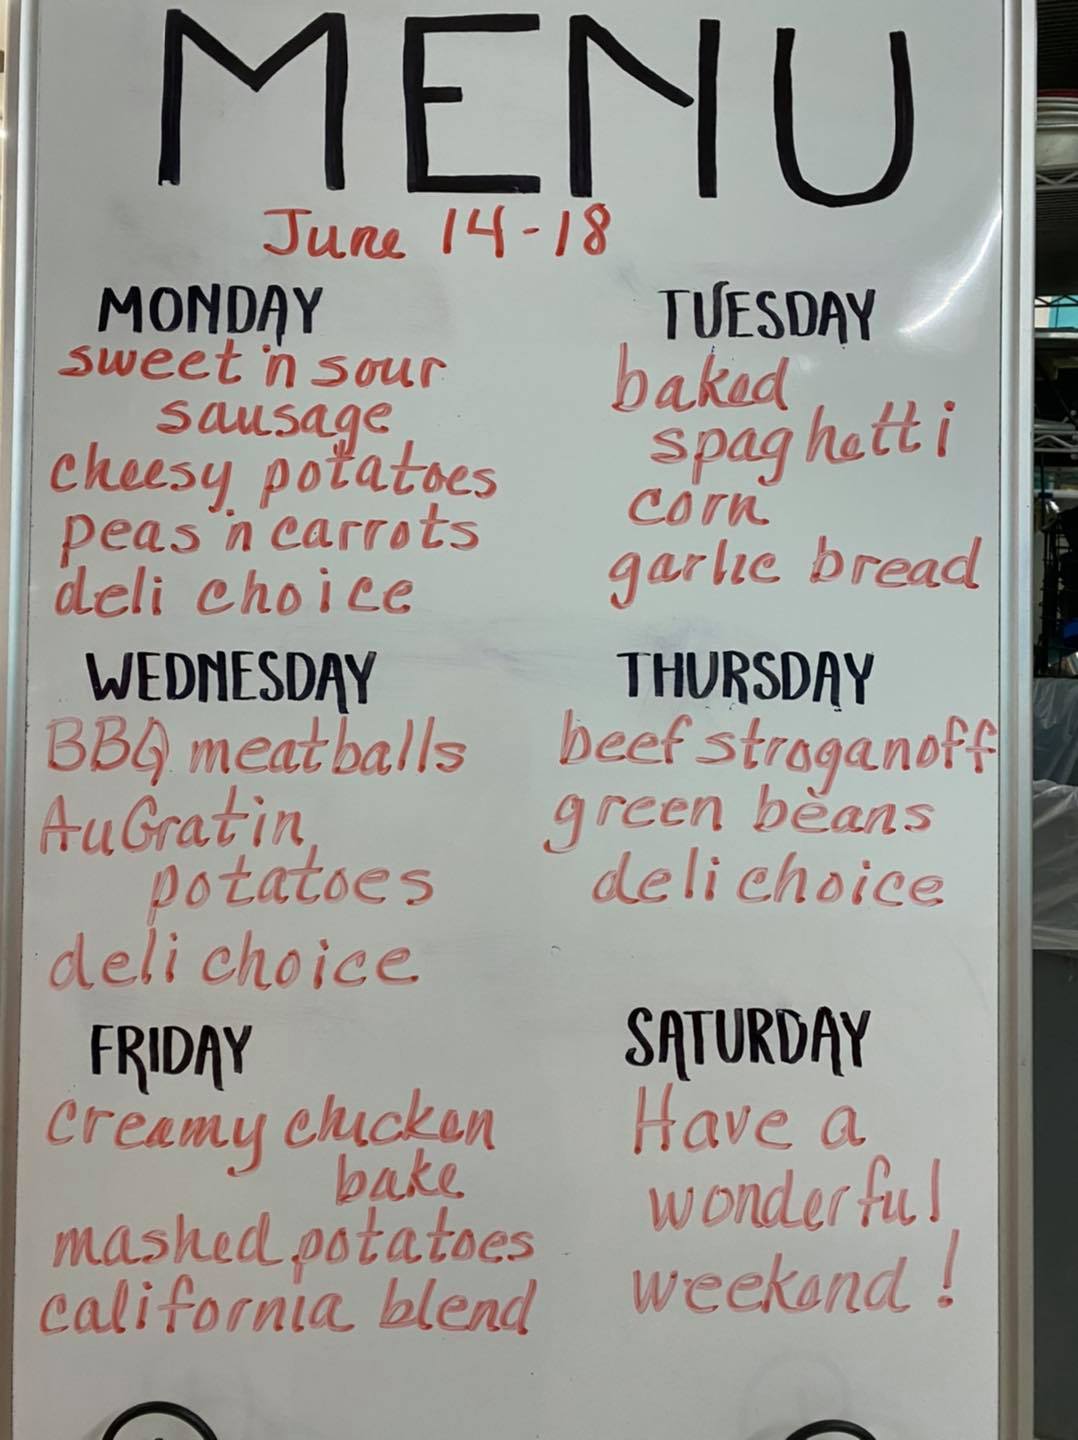 MENU
June 14-18
MONDAY
sweet 'n sour
sausage
cheesy potatoes
peas 'n carrots
deli choice
TUESDAY
baked
spaghetti
corn
garlic bread
WEDNESDAY
BBQ meatballs
AuGratin
potatoes
deli choice
THURSDAY
beef stroganoff
green beans
deli choice
FRIDAY
creamy chicken
bake
mashed potatoes
california blend
SATURDAY
Have a
wonderful
weekend!